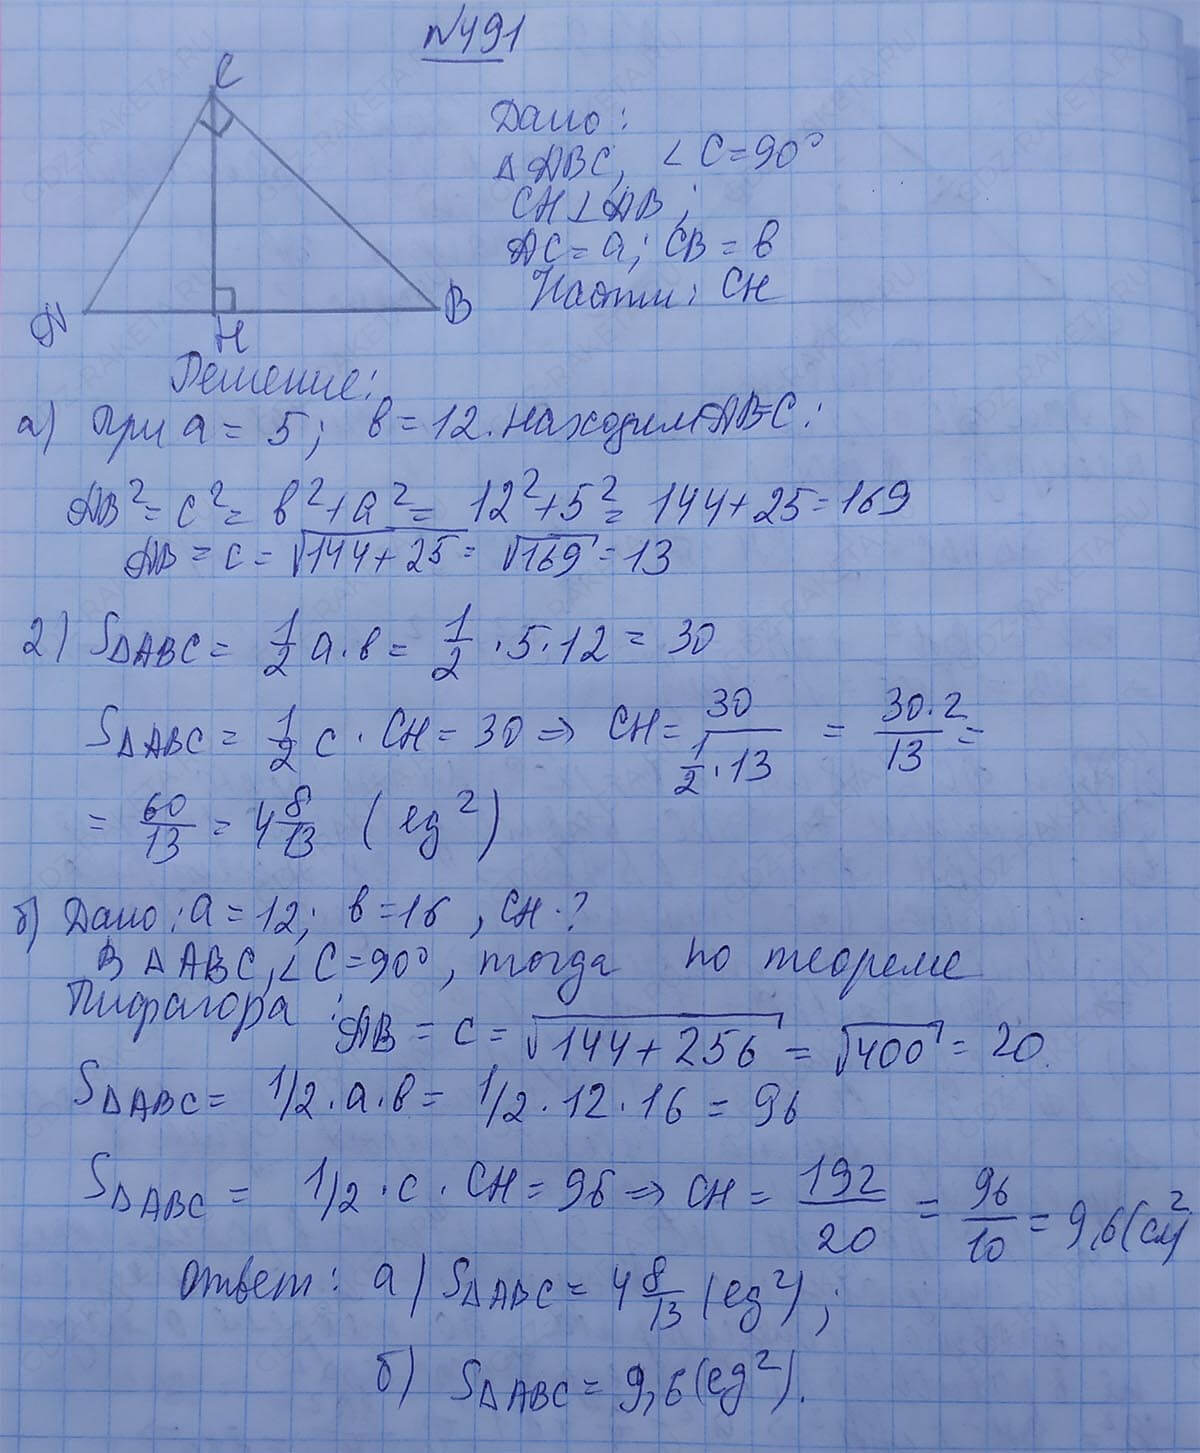 №491
C
A
H
B
Дано:
△ABC, ∠C=90°
CH⊥AB;
AC=a; CB=в
Найти: CH
Решение:
а) При a=5; в=12. Находим ABC:
AB²=c²=в²+a²=12²+5²=144+25=169
AB=c=√144+25=√169=13
2) S△ABC=1/2 a·в=1/2·5·12=30
S△ABC=1/2 c·CH=30⇒CH=30/(1/2·13)=30·2/13=
=60/13=4 8/13 (ед²)
б) Дано: a=12; в=16, CH-?
В △ABC, ∠C=90°, тогда по теореме
Пифагора: AB=c=√144+256=√400=20.
S△ABC=1/2·a·в=1/2·12·16=96
S△ABC=1/2·c·CH=96⇒CH=192/20=96/10=9,6(см²)
Ответ: а) S△ABC=4 8/13 (ед²);
б) S△ABC=9,6(ед²).